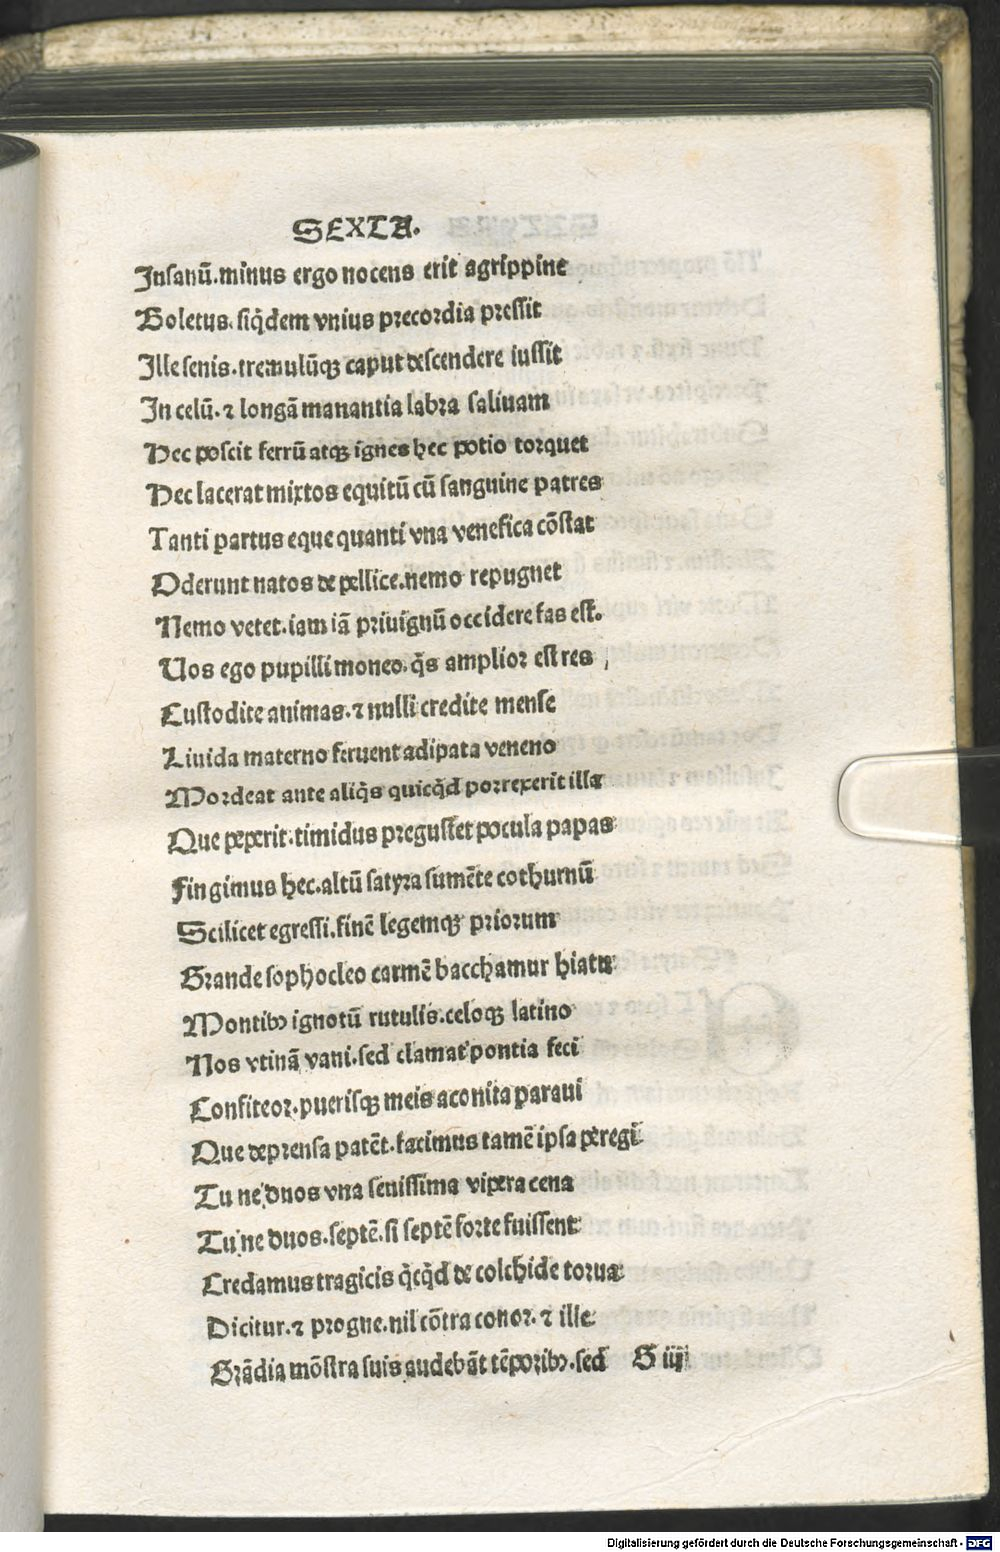 SEXTA.
Insanū.minus ergo nocens erit agrippine
Boletus.siq̄dem vnius precordia pressit
Ille senis.tremulūqꝫ caput descendere iussit
In celū.⁊ longā manantia labra saliuam
Hec poscit ferrū atqꝫ ignes hec potio torquet
Hec lacerat mixtos equitū cū sanguine patres
Tanti partus eque quanti vna venefica cōstat
Oderunt natos de pellice.nemo repugnet
Nemo vetet.iam iā priuignū occidere fas est.
Uos ego pupilli moneo.q̄s amplior est res
Custodite animas.⁊ nulli credite mense
Liuida materno feruent adipata veneno
Mordeat ante aliq̄s quicq̄d porrexerit illa
Que peperit.timidus pregustet pocula papas
Fingimus hec.altū satyra sumēte cothurnū
Scilicet egressi.finē legemqꝫ priorum
Grande sophocleo carmē bacchamur hiatu
Montibꝰ ignotū rutulis.celoqꝫ latino
Nos vtinā vani.sed clamat pontia feci
Confiteor.puerisqꝫ meis aconita paraui
Que deprensa patēt.facimus tamē ipsa peregi
Tu ne duos vna seuissima vipera cena
Tu ne duos.septē.si septē forte fuissent
Credamus tragicis q̄cq̄d de colchide torua
Dicitur.⁊ progne.nil cōtra conor.⁊ ille
Grādia mōstra suis audebāt tēporibꝰ.sed G iiij
Digitalisierung gefördert durch die Deutsche Forschungsgemeinschaft - DFG